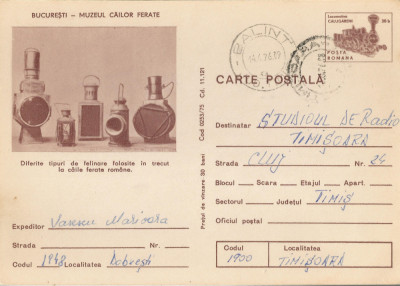 BUCUREȘTI - MUZEUL CĂILOR FERATE
Diferite tipuri de felinare folosite în trecut
la căile ferate române.
Expeditor Vancsu Marioara
Strada Nr.
Codul 1948 Localitatea Dobrești
Cod 0253/75 Cd. 11.121
Prețul de vînzare 30 bani
BALINT
Locomotiva
CĂLUGĂRENI 30 b
POȘTA
ROMÂNĂ
CARTE POȘTALĂ
Destinatar STUDIOUL DE Radio
TIMIȘOARA
Strada CLUJ Nr. 24
Blocul Scara Etajul Apart.
Sectorul Județul TIMIȘ
Oficiul poștal
Codul 1900
Localitatea TIMIȘOARA